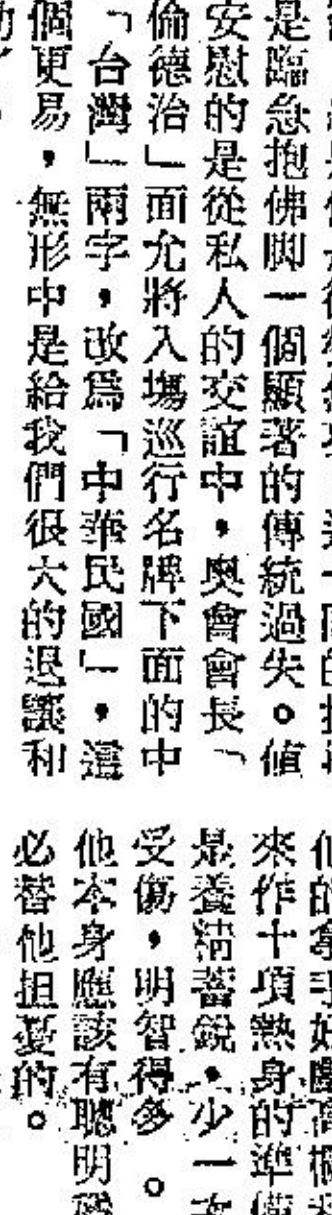 是臨急抱佛脚一個顯著的傳統過失。値
安慰的是從私人的交誼中,奧會會長「
倫德治」面允將入塲巡行名牌下面的中
「台灣」兩字,改爲「中華民國」,這
個更易,無形中是給我們很大的退讓和
來作十項熱身的準備
是養精蓄銳,少一次
受傷,明智得多。
他本身應該有聰明
必替他担憂的。